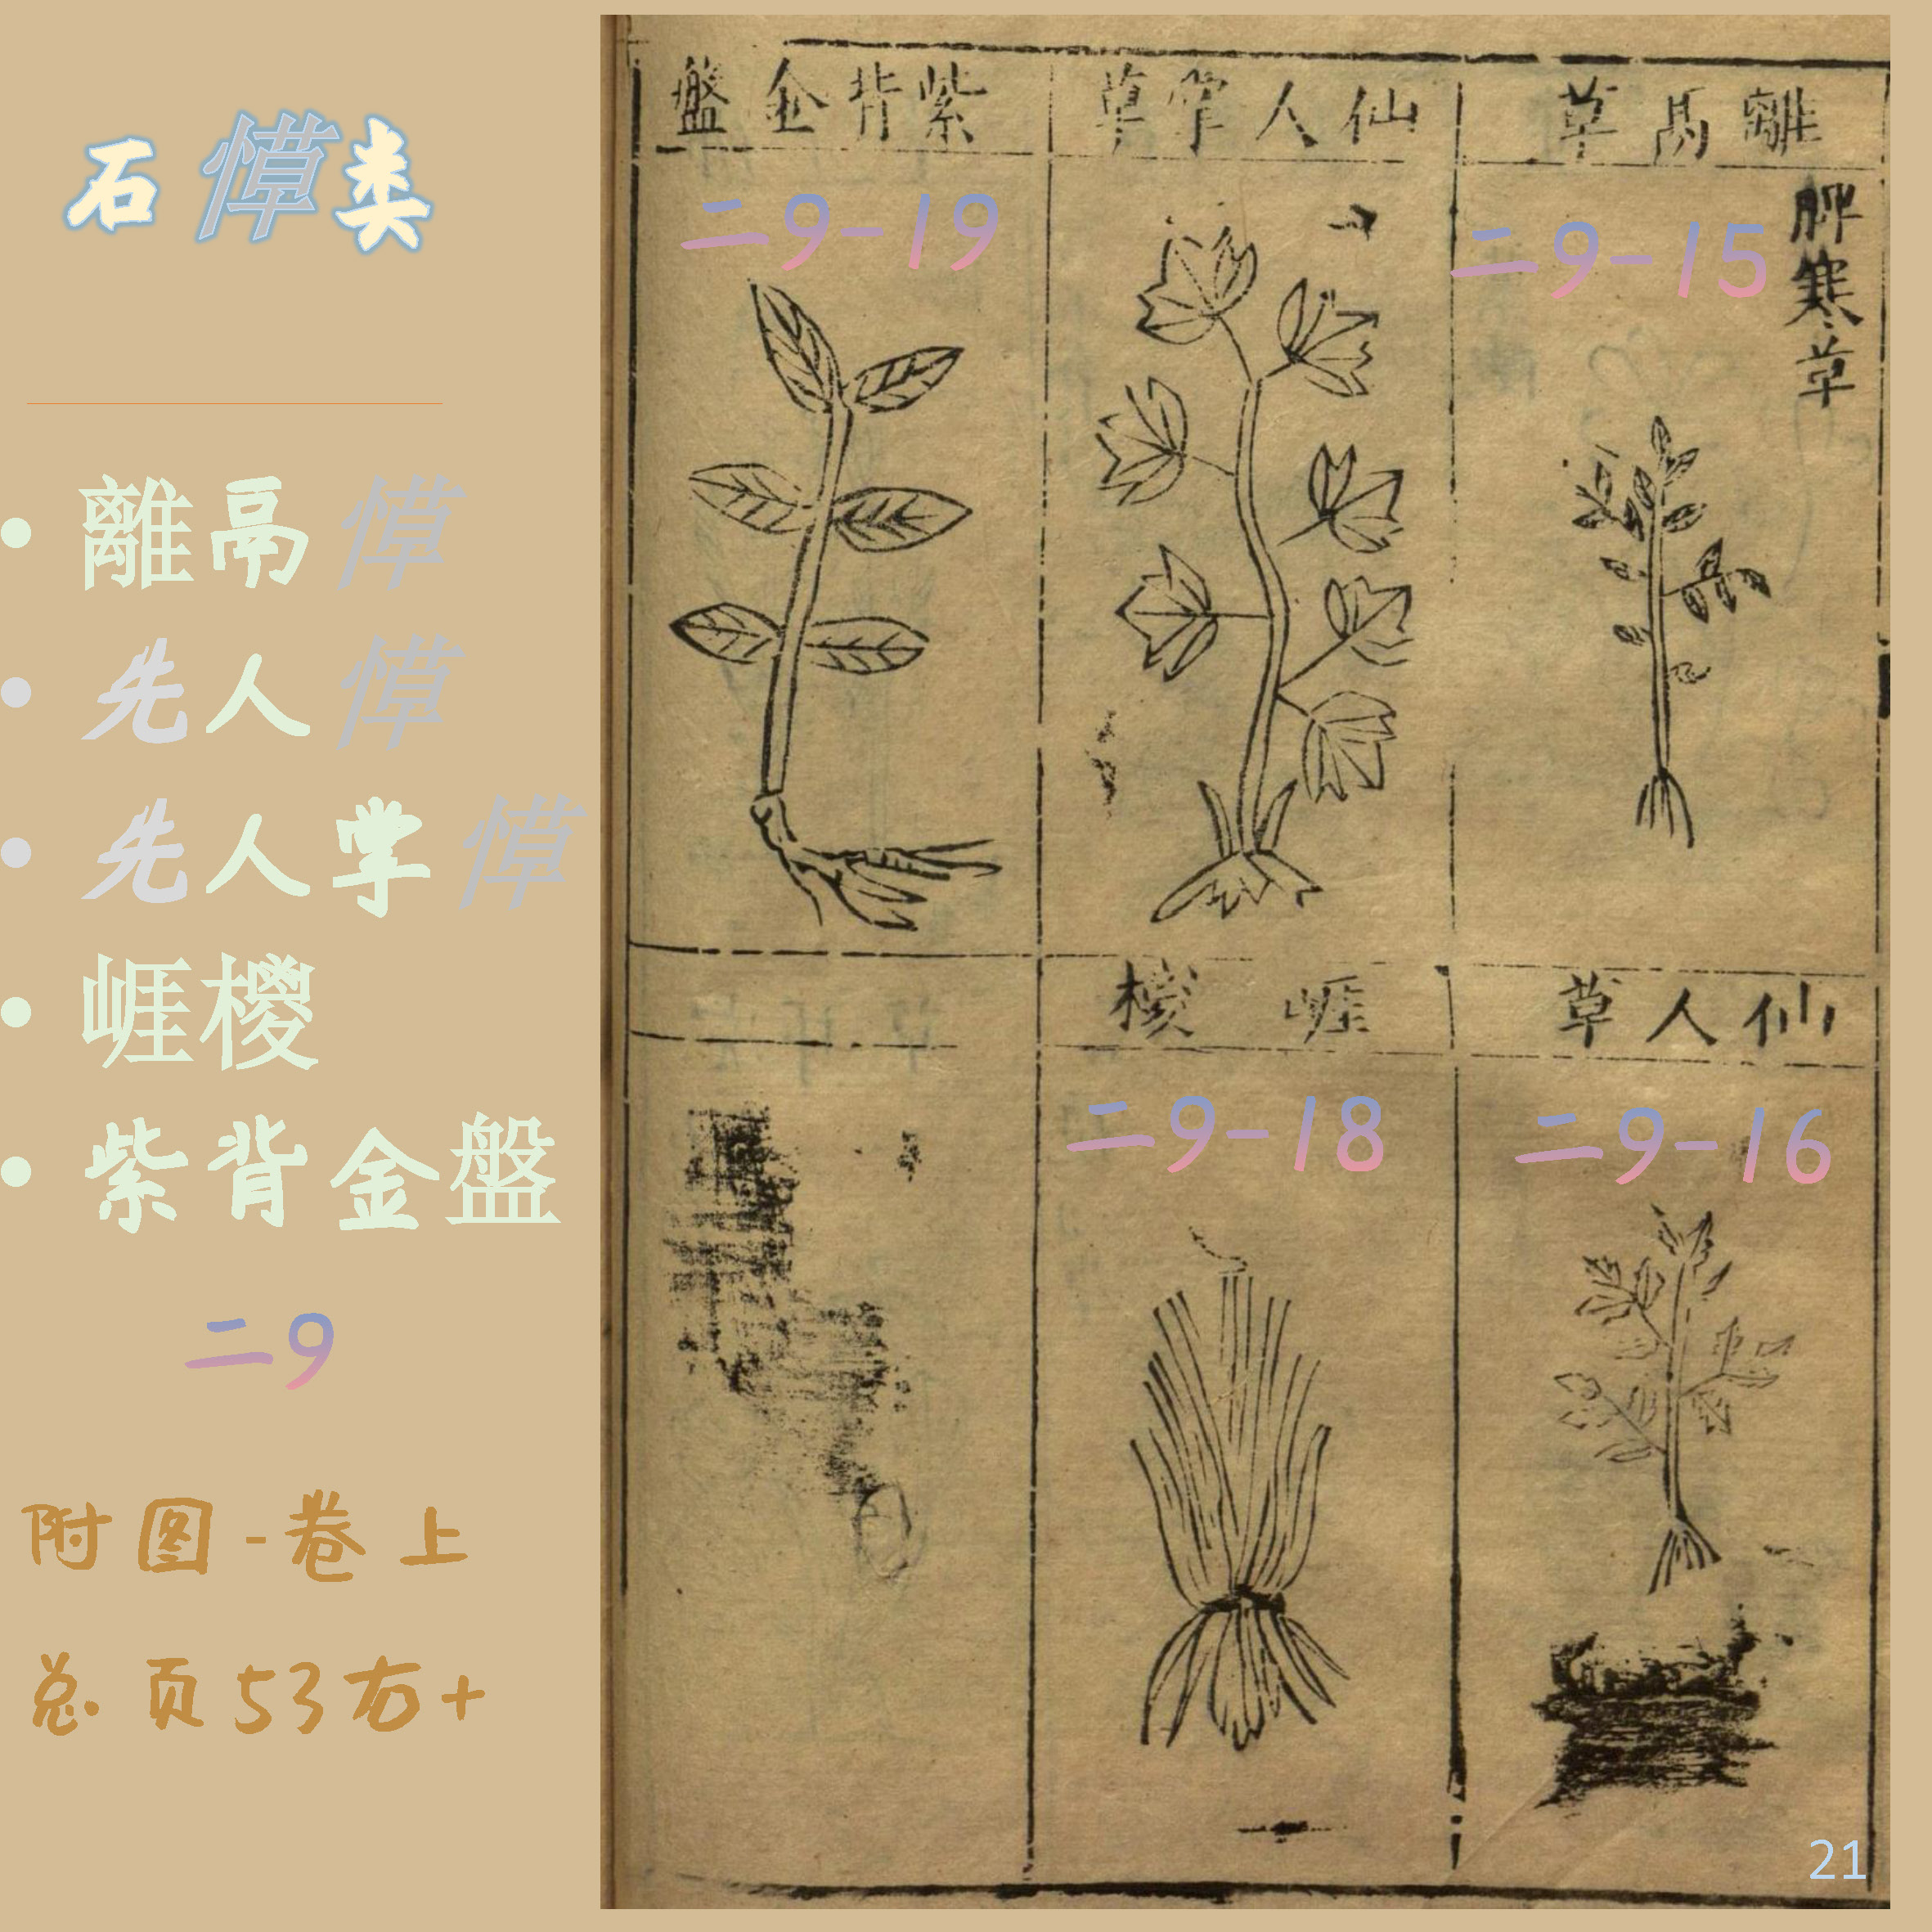 石愺类
離鬲愺
先人愺
先人掌愺
崕椶
紫背金盤
二9
附图-卷上
总页53右+
離鬲草
脾寒草
二9-15
仙人掌草
紫背金盤
二9-19
仙人草
二9-16
崕椶
二9-18
21